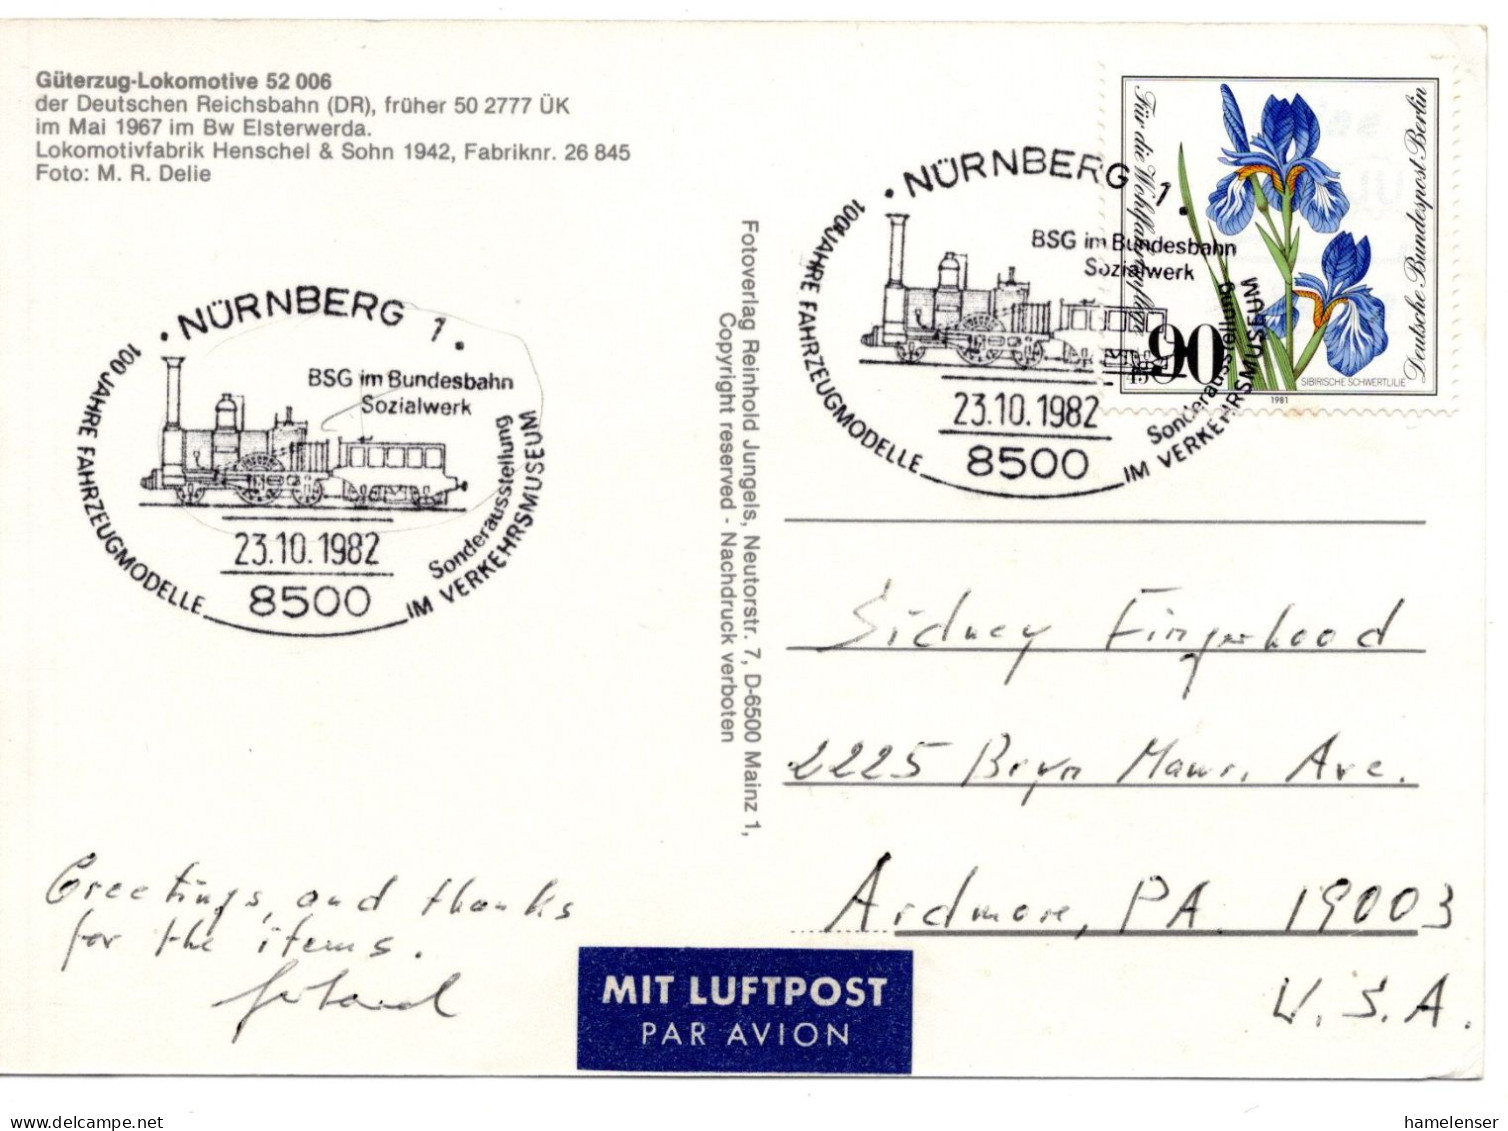 Güterzug-Lokomotive 52 006
der Deutschen Reichsbahn (DR), früher 50 2777 ÜK
im Mai 1967 im Bw Elsterwerda.
Lokomotivfabrik Henschel & Sohn 1942, Fabriknr. 26 845
Foto: M. R. Delie
• NÜRNBERG 1 •
BSG im Bundesbahn
Sozialwerk
100 JAHRE FAHRZEUGMODELLE
Sonderausstellung
IM VERKEHRSMUSEUM
23.10.1982
8500
Greetings, and thanks
for the items.
Fotoverlag Reinhold Jungels, Neutorstr. 7, D-6500 Mainz 1,
Copyright reserved - Nachdruck verboten
• NÜRNBERG 1 •
BSG im Bundesbahn
Sozialwerk
100 JAHRE FAHRZEUGMODELLE
Sonderausstellung
IM VERKEHRSMUSEUM
23.10.1982
8500
Für die Wohlfahrtspflege
Deutsche Bundespost Berlin
90
45
SIBIRISCHE SCHWERTLILIE
1981
Sidney Fingerhood
2225 Bryn Mawr. Ave.
Ardmore, PA 19003
U.S.A.
MIT LUFTPOST
PAR AVION
delcampe.net
hamelenser